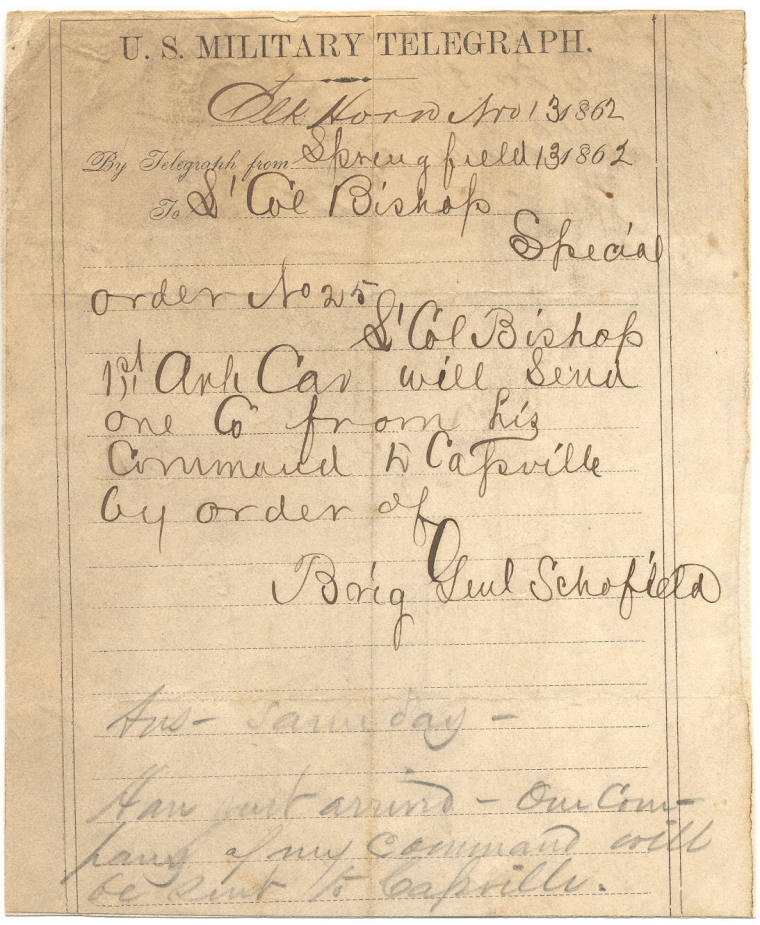 U. S. MILITARY TELEGRAPH.
Elk Horn Nov 13 1862
By Telegraph from Springfield 13 1862
To Lt Col Bishop
Special
order No 25
Lt Col Bishop
1st Ark Cav will Send
one Co from his
Command to Cassville
by order of
Brig Genl Schofield
Ans - Same day -
Have just arrived - One Com-
pany of my command will
be sent to Cassville.